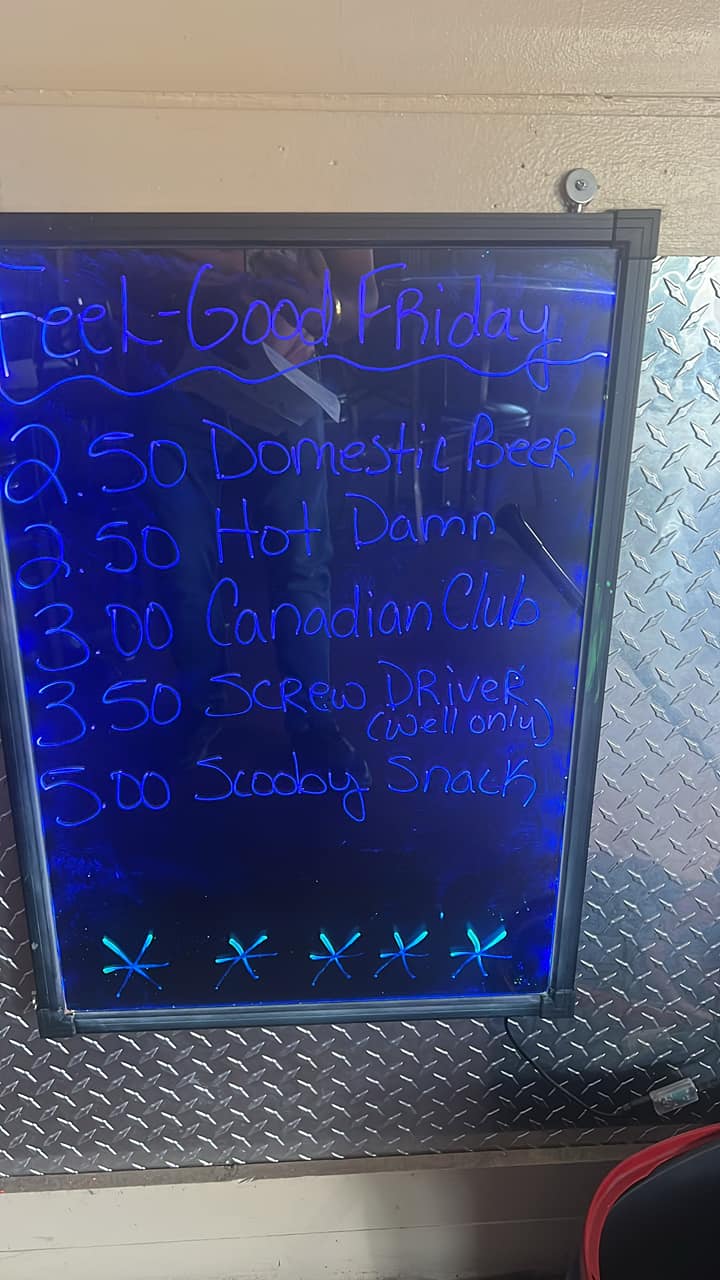 Feel-Good Friday
2.50 Domestic Beer
2.50 Hot Damn
3.00 Canadian Club
3.50 Screw Driver
(well only)
5.00 Scooby Snack